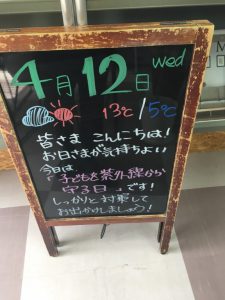 4月12日 wed
13℃/5℃
皆さま こんにちは!
お日さまが気持ちよい
今日は
「子どもを紫外線から
守る日」です!
しっかりと対策して
お出かけしましょう!